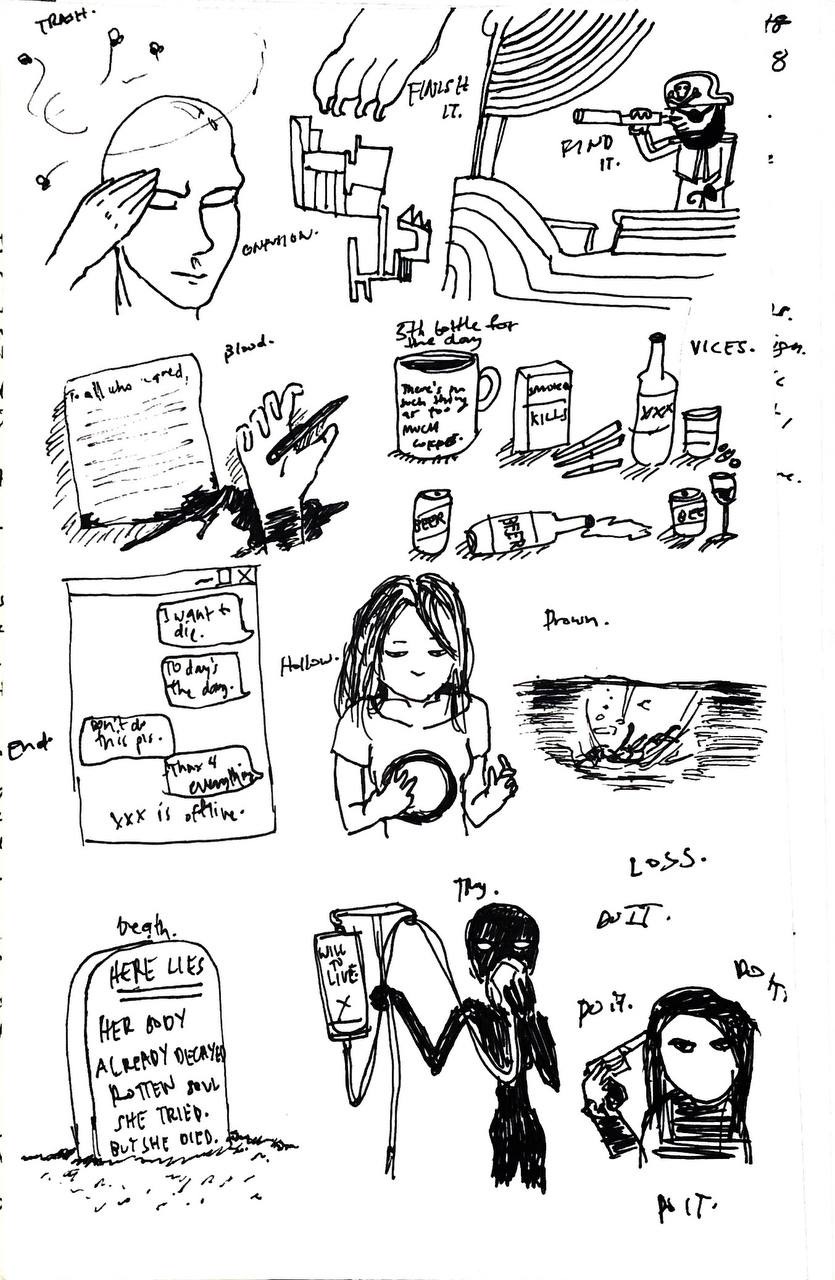 TRASH.
FINISH
IT.
FIND
IT.
8
Blood.
To all who
5th bottle for
the day
There's no
such thing
as too
MUCH
COFFEE.
SMOKE
KILLS
XXX
VICES.
BEER
BEER
BEE
I want to
die.
Today's
the day.
Don't do
this pls.
Thanx 4
everything
XXX is offline.
End.
Hollow.
Drown.
LOSS.
Death.
HERE LIES
HER BODY
ALREADY DECAYED
ROTTEN SOUL
SHE TRIED.
BUT SHE DIED.
Try.
WILL
TO
LIVE.
X
DO IT.
DO IT.
DO
IT.
DO IT.